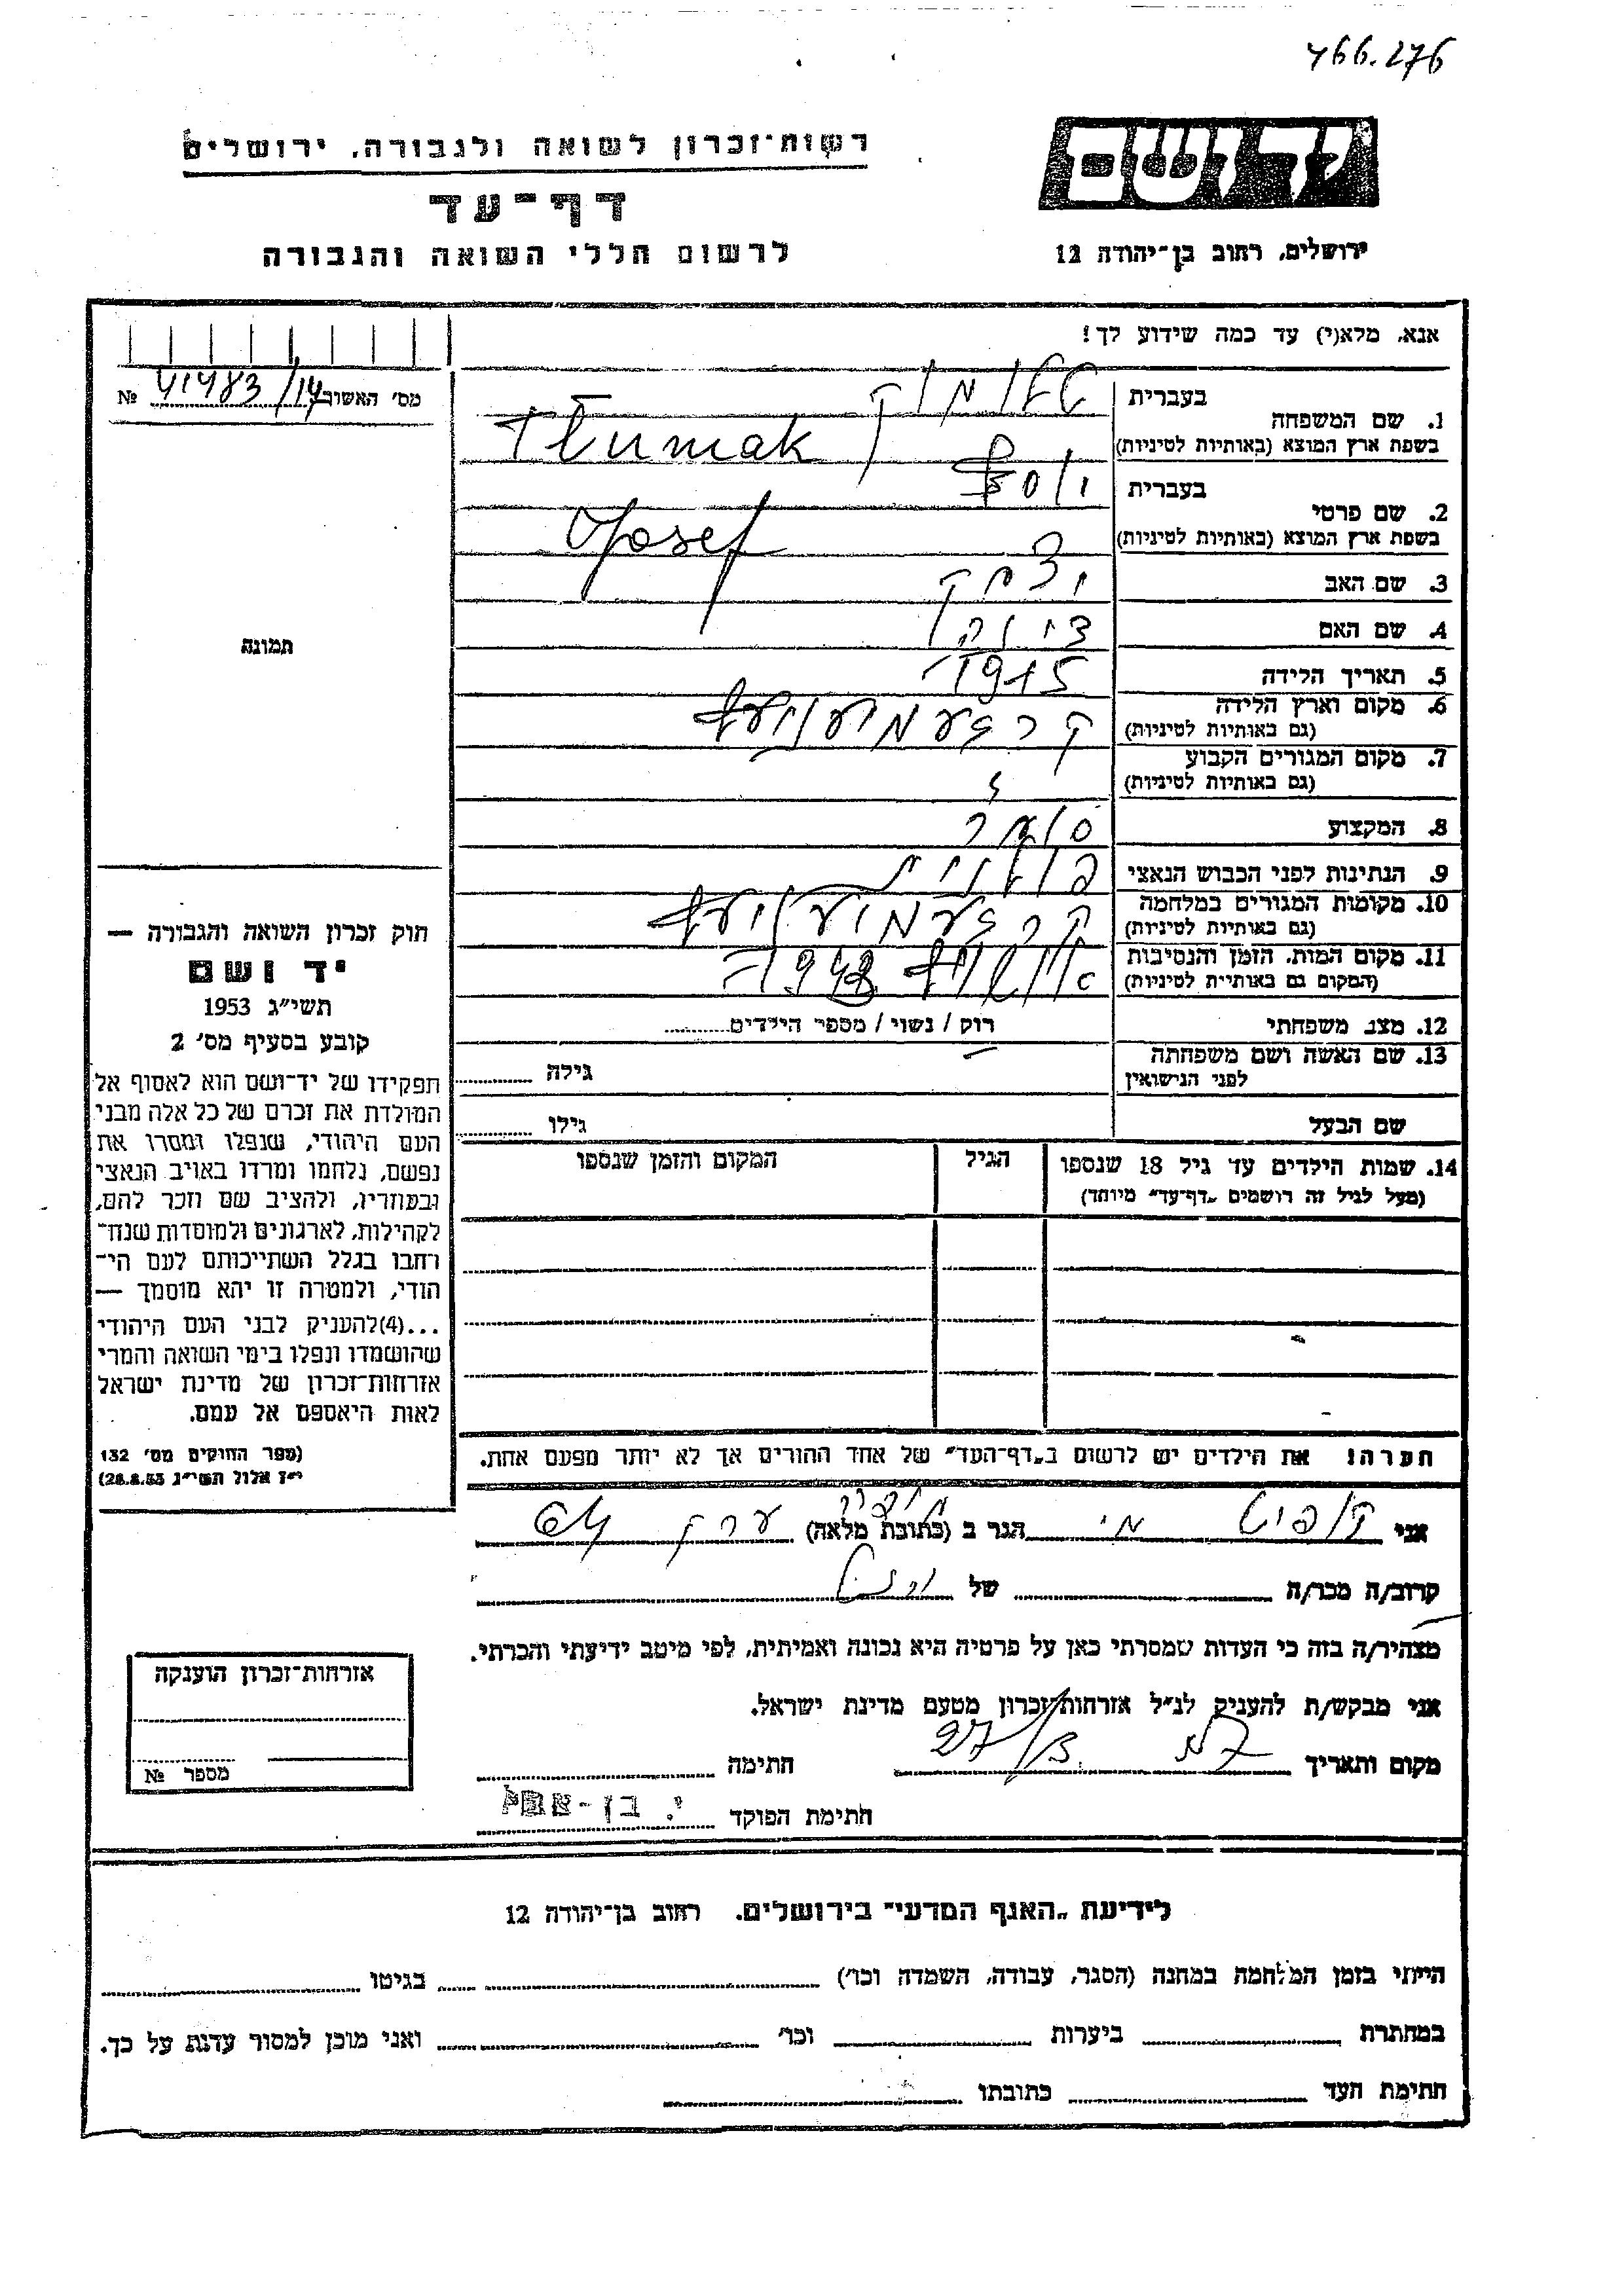 466.276
רשות־זכרון לשואה ולגבורה, ירושלים
דף־עד
לרשום חללי השואה והגבורה
ידושם
ירושלים, רחוב בן־יהודה 12
אנא, מלא(י) עד כמה שידוע לך!
מס׳ האשור 41483/14 №
תמונה
1. שם המשפחה
בעברית טלומק
בשפת ארץ המוצא (באותיות לטיניות) Tłumak
2. שם פרטי
בעברית יוסף
בשפת ארץ המוצא (באותיות לטיניות) Josef
3. שם האב יצחק
4. שם האם
5. תאריך הלידה 1915
6. מקום וארץ הלידה
(גם באותיות לטיניות)
7. מקום המגורים הקבוע
(גם באותיות לטיניות)
8. המקצוע סוחר
9. הנתינות לפני הכבוש הנאצי פולנית
10. מקומות המגורים במלחמה
(גם באותיות לטיניות)
11. מקום המות, הזמן והנסיבות
(המקום גם באותיית לטיניות)
12. מצב משפחתי רוק / נשוי / מספר הילדים
13. שם האשה ושם משפחתה
לפני הנישואין גילה
שם הבעל גילו
14. שמות הילדים עד גיל 18 שנספו הגיל המקום והזמן שנספו
(מעל לגיל זה רושמים „דף־עד״ מיוחד)
חוק זכרון השואה והגבורה —
יד ושם
תשי״ג 1953
קובע בסעיף מס׳ 2
תפקידו של יד־ושם הוא לאסוף אל
המולדת את זכרם של כל אלה מבני
העם היהודי, שנפלו ומסרו את
נפשם, נלחמו ומרדו באויב הנאצי
ובעוזריו, ולהציב שם וזכר להם,
לקהילות, לארגונים ולמוסדות שנח־
רחבו בגלל השתייכותם לעם הי־
הודי, ולמטרה זו יהא מוסמך —
...(4)להעניק לבני העם היהודי
שהושמדו ונפלו בימי השואה והמרי
אזרחות־זכרון של מדינת ישראל
לאות היאספם אל עמם.
(ספר החוקים מס׳ 132
י״ז אלול תשי״ג 28.8.53)
הערה! את הילדים יש לרשום ב„דף־העד״ של אחד ההורים אך לא יותר מפעם אחת.
אני הגר ב (כתובת מלאה) 64
קרוב/ה מכר/ה של
מצהיר/ה בזה כי העדות שמסרתי כאן על פרטיה היא נכונה ואמיתית, לפי מיטב ידיעתי והכרתי.
אני מבקש/ת להעניק לנ״ל אזרחות־זכרון מטעם מדינת ישראל.
מקום ותאריך חתימה
חתימת הפוקד י. בן-
אזרחות־זכרון הוענקה
מספר №
לידיעת „האגף המדעי״ בירושלים. רחוב בן־יהודה 12
הייתי בזמן המלחמה במחנה (הסגר, עבודה, השמדה וכו׳) בגיטו
במחתרת ביערות וכו׳ ואני מוכן למסור עדות על כך.
חתימת העד כתובתו